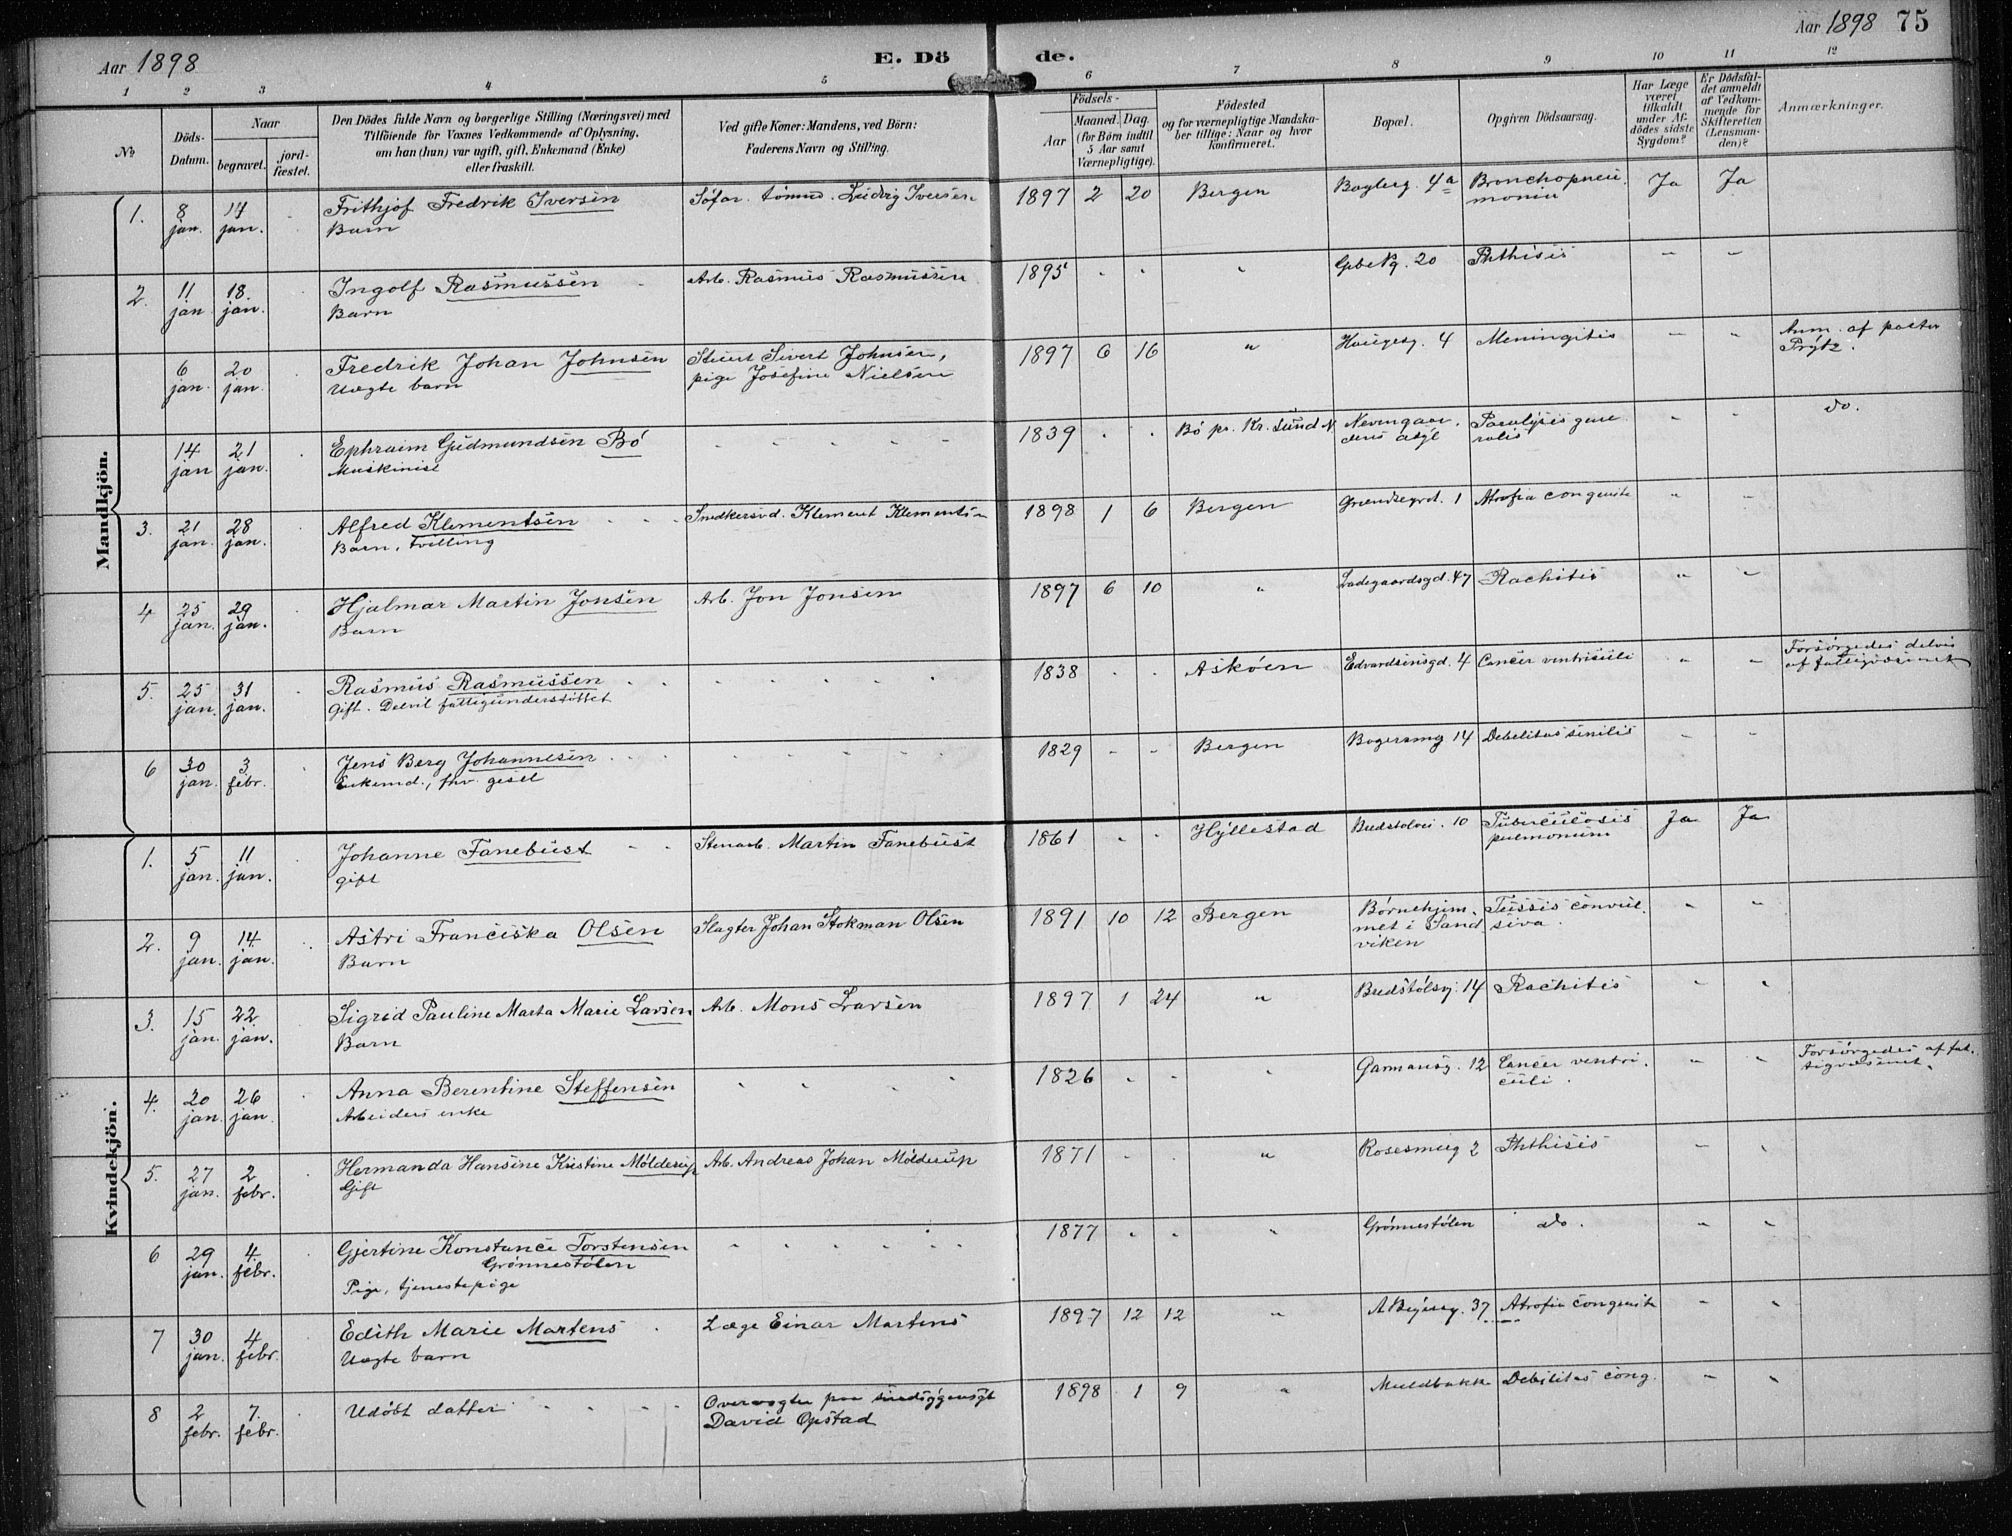 Aar 1898
E. Döde.
Aar 1898 75
1 2 3 4 5 6 7 8 9 10 11 12
No
Döds-Datum.
Naar
begravet.
jord-fæstet.
Den Dödes fulde Navn og borgerlige Stilling (Næringsvei) med
Tilföiende for Voxnes Vedkommende af Oplysning,
om han (hun) var ugift, gift, Enkemand (Enke)
eller fraskilt.
Ved gifte Koner: Mandens, ved Börn:
Faderens Navn og Stilling.
Födsels-
Aar
Maaned. Dag.
(for Börn indtil
5 Aar samt
Værnepligtige).
Födested
og for værnepligtige Mandska-
ber tillige: Naar og hvor
konfirmeret.
Bopæl.
Opgiven Dödsaarsag.
Har Læge
været
tilkaldt
under Af-
dödes sidste
Sygdom?
Er Dödsfal-
det anmeldt
af Vedkom-
mende for
Skifteretten
(Lensman-
den)?
Anmærkninger.
Mandkjön.
1. 8 jan. 14 jan. Frithjof Fredrik Iversen Søfar. tømmd. Ludvig Iversen 1897 2 20 Bergen 4a Bronchopneu Ja Ja
Barn monia
2. 11 jan 18. jan. Ingolf Rasmussen Arb. Rasmus Rasmussen 1895 " 20 Phthisis " "
Barn
6 jan. 20 jan. Fredrik Johan Johnsen Stuert Sivert Johnsen, 1897 6 16 " Haugesg. 4 Meningitis " " Anm. af pastor
Uægte barn pige Josefine Nielsen Prytz.
14 jan 21 jan. Ephraim Gudmundsen Bö 1839 Bö pr. Kr. sund N Nevengaar. Paralysis gene " " do.
Maskinist dens asyl ralis
3. 21 jan. 28 jan. Alfred Klementsen Snedkersvd. Klement Klementsen 1898 1 6 Bergen 1 Atrofia congenita " "
Barn, tvilling
4 25 jan. 29 jan. Hjalmar Martin Jonsen Arb. Jon Jonsen 1897 6 10 " Ladegaardsgd. 47 Rachitis " "
Barn
5. 25 jan. 31 jan. Rasmus Rasmussen 1838 Askøen Edvardsensgd. 4 Cancer ventriculi " " Forsørgedes delvis
Gift. Delvis fattigunderstøttet af fattigvæsenet
6 30 jan. 3 febr. Jens Berg Johannesen 1829 Bergen 14 Debilitas senilis " "
Enkemd., fhv. gesel
Kvindekjön.
1. 5 jan. 11 jan. Johanne Fanebust Stenarb. Martin Fanebust 1861 Hyllestad Bredstolvei. 10 Tuberculosis Ja Ja
gift pulmonum
2. 9 jan. 14. jan. Astri Franciska Olsen Slagter Johan Stokman Olsen 1891 10 12 Bergen Børnehjem. Tussis convul. " "
Barn met i Sand siva.
viken
3. 15 jan. 22. jan. Sigrid Pauline Marta Marie Larsen Arb. Mons Larsen 1897 1 24 " Bredstølsvg. 14 Rachitis " "
Barn
4. 20 jan. 26 jan. Anna Berentine Steffensen 1826 " Garmansg. 12 Cancer ventri. " " Forsørgedes af fat.
Arbeiders enke culi. tigvæsenet.
5. 27 jan. 2 febr. Hermanda Hansine Kristine Mølderup Arb. Andreas Johan Mølderup 1871 " Rosesmug 2 Phthisis " "
Gift
6 29 jan. 4. febr. Gjertine Konstance Torstensen 1877 " Grønnestølen do. " "
Grønnestølen
Pige, tjenestepige
7 30 jan. 4 febr. Edith Marie Martens Læge Einar Martens 1897 12 12 " 37 Atrofia congenita " "
Uægte barn
8 2 febr. 7. febr. Udøbt datter Overvogter paa sindsygeasyl 1898 1 9 " Muldbakk Debilitas cong. " "
David Opstad